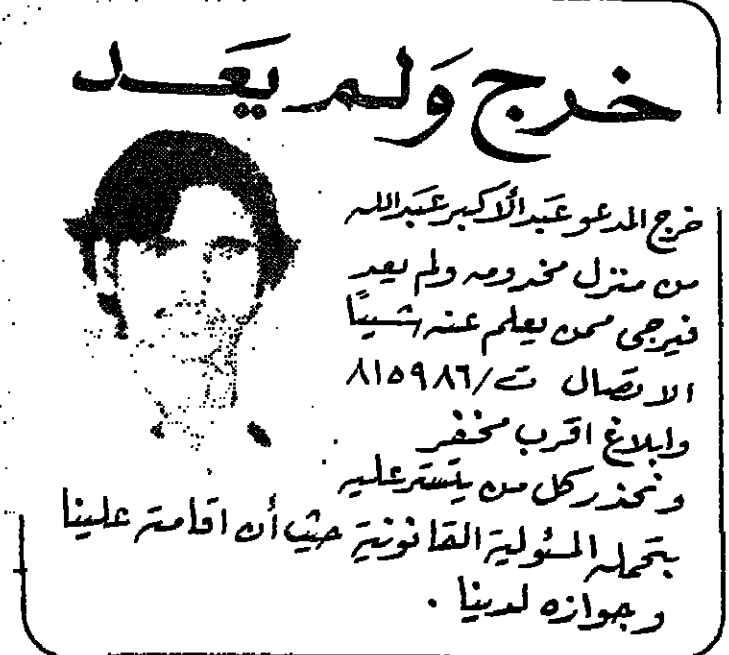 خرج وَلم يَعد
خرج المدعو عَبدالأكبر عَبدالله
من منزل مخدومه ولم يعد
فيرجى ممن يعلم عنه شيئاً
الاتصال ت/٨١٥٩٨٦
وابلاغ اقرب مخفر
ونحذر كل من يتستر عليه
بتحمله المسئولية القانونية حيث أن اقامته علينا
وجوازه لدينا .